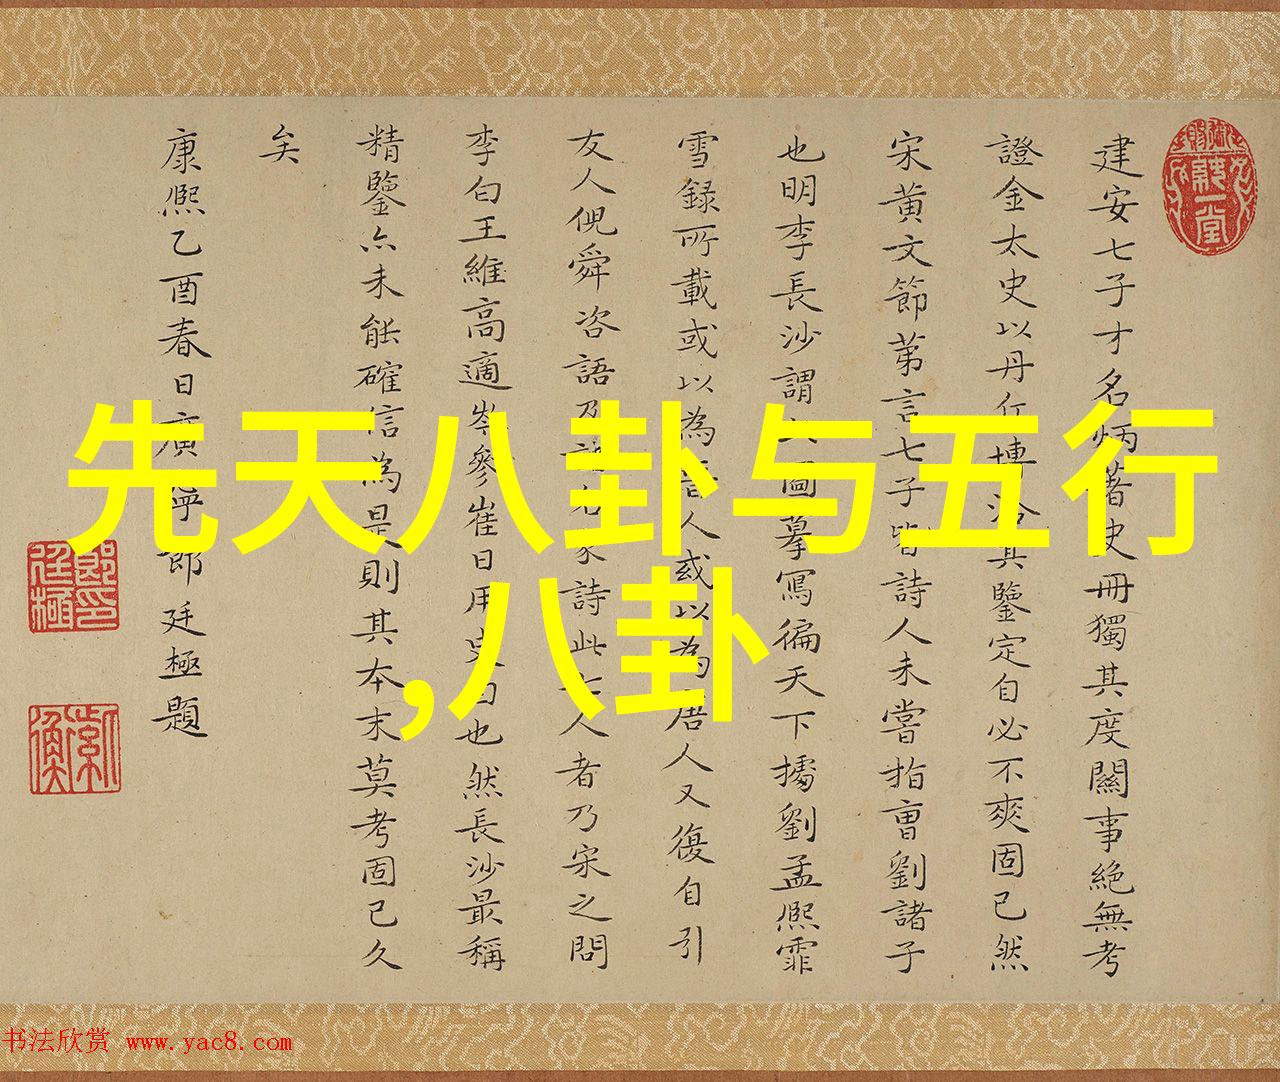 建安七子才名炳著史冊獨其度關事絕無考
證金太史以丹丘博洽其鑒定自必不爽固已然
宋黃文節第言七子皆詩人未嘗指曹劉諸子
也明李長沙謂圖摹寫徧天下據劉孟熙霏
雪錄所載或以為晉人或以為唐人又復自引
友人倪舜咨語及詩此七人者乃宋之問
李白王維高適岑參崔日用史白也然長沙最稱
精鑒亦未能確信為是則其本末莫考固已久
矣
康熙乙酉春日廣寧郎廷極題
先天八卦与五行
,八卦
书法欣赏 www.yac8.com